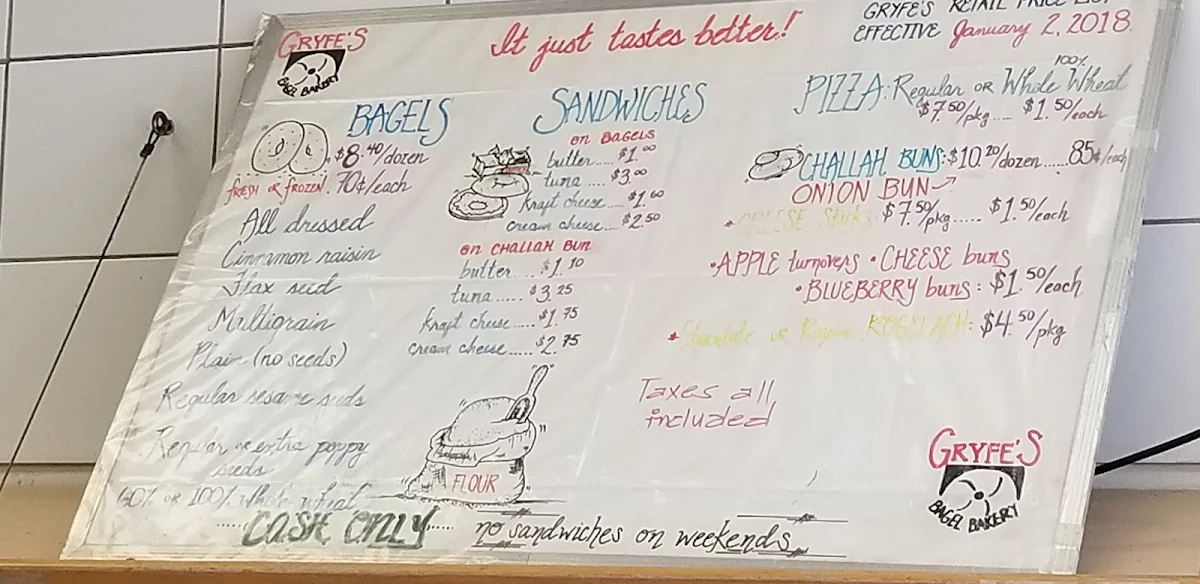 GRYFE'S
BAGEL BAKERY
It just tastes better!
GRYFE'S RETAIL PRICE LIST
EFFECTIVE January 2, 2018.
BAGELS
$8.40/dozen
FRESH OR FROZEN. 70¢/each
All dressed
Cinnamon raisin
Flax seed
Multigrain
Plain (no seeds)
Regular sesame seeds
Regular or extra poppy
seeds
60% OR 100% whole wheat
SANDWICHES
on BAGELS
butter.....$1.00
tuna ..... $3.00
Kraft cheese.....$1.60
cream cheese...$2.50
on CHALLAH BUN
butter ...$1.10
tuna.....$3.25
Kraft cheese.....$1.75
cream cheese.....$2.75
FLOUR
PIZZA: Regular OR 100% Whole Wheat
$7.50/pkg..... $1.50/each
CHALLAH BUNS: $10.20/dozen.....85¢/each
ONION BUN
• CHEESE Sticks: $7.50/pkg...... $1.50/each
•APPLE turnovers •CHEESE buns
•BLUEBERRY buns: $1.50/each
• Chocolate or Raisin ROGELACH: $4.50/pkg
Taxes all
included
GRYFE'S
BAGEL BAKERY
.....CASH ONLY..... no sandwiches on weekends